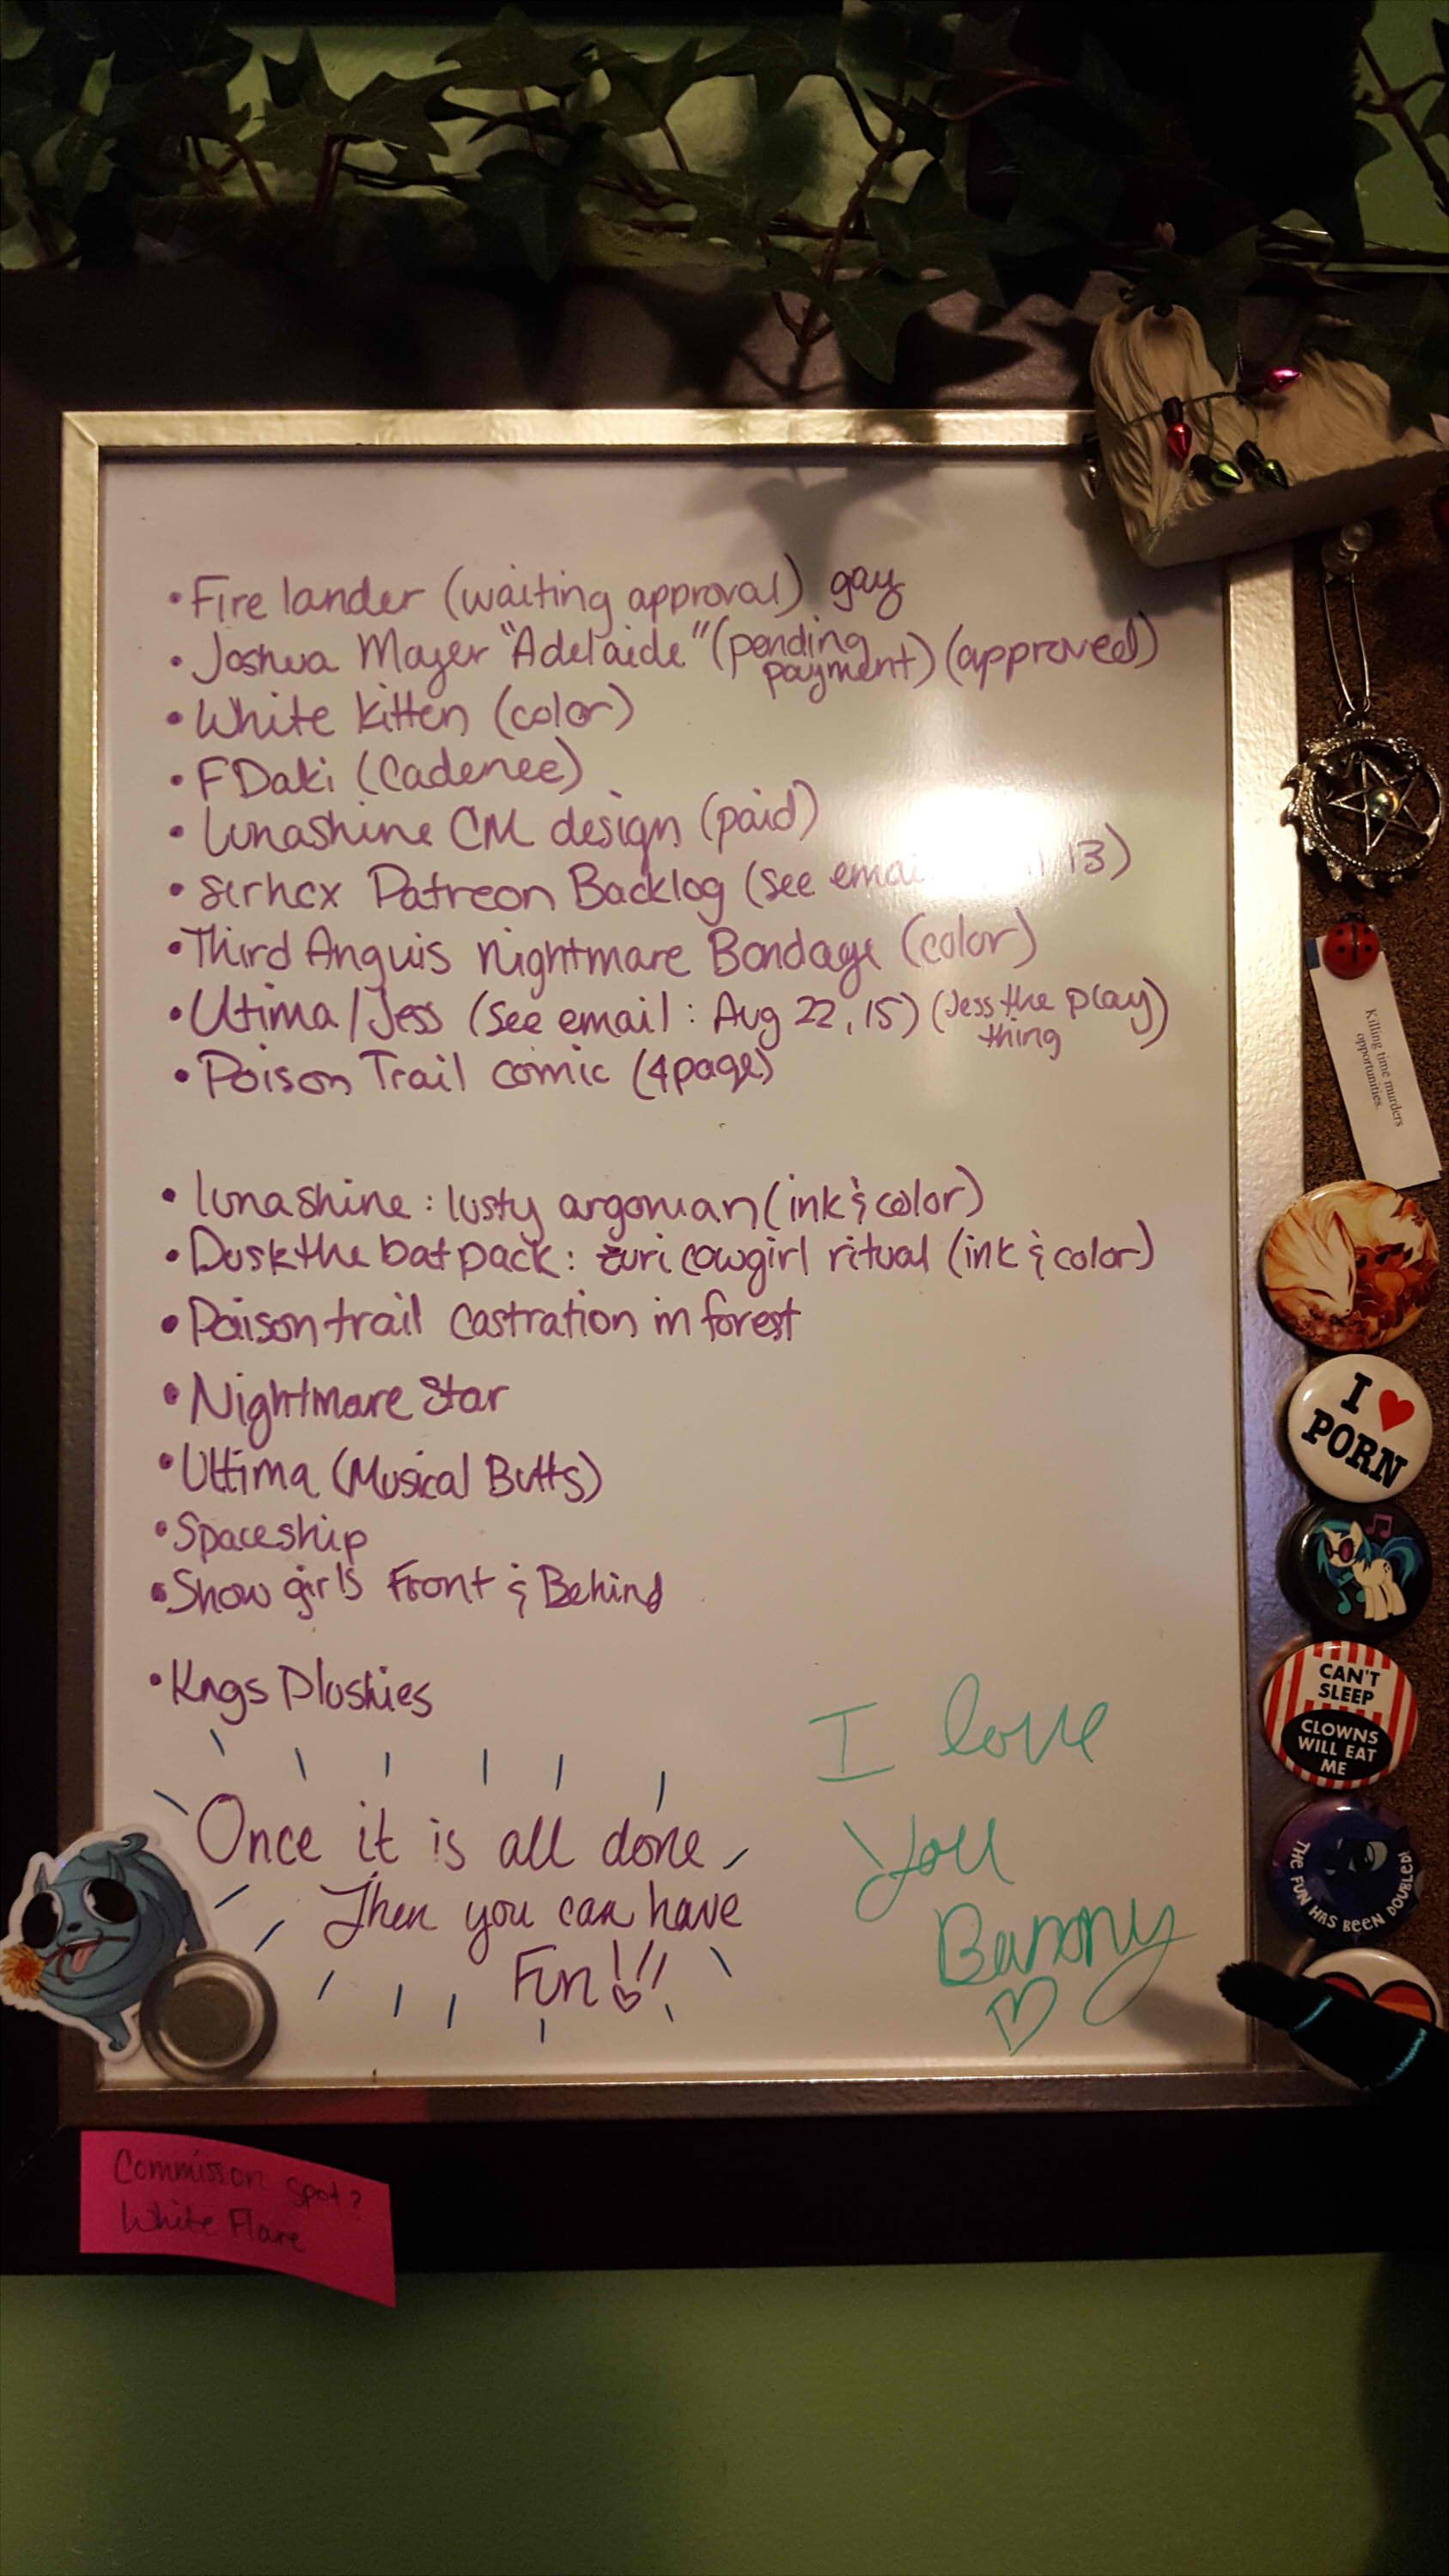 • Fire lander (waiting approval) gay
• Joshua Mayer "Adelaide" (pending payment) (approved)
• White kitten (color)
• FDaki (Cadenee)
• Lunashine CM design (paid)
• sirhcx Patreon Backlog (see emai 13)
• Third Anguis nightmare Bondage (color)
• Utima/Jess (See email: Aug 22, 15) (Jess the play thing)
• Poison Trail comic (4page)
• lunashine: lusty argonian (ink & color)
• Duskthe batpack: zuri cowgirl ritual (ink & color)
• Poison trail castration in forest
• Nightmare Star
• Ultima (Musical Butts)
• Spaceship
• Show girls Front & Behind
• Kngs Plushies
Once it is all done
Then you can have
Fun!!!
I love
you
Bunny
Commisson spot?
White Flare
Killing time murders
opportunities.
I ♥
PORN
CAN'T
SLEEP
CLOWNS
WILL EAT
ME
THE FUN HAS BEEN DOUBLED!